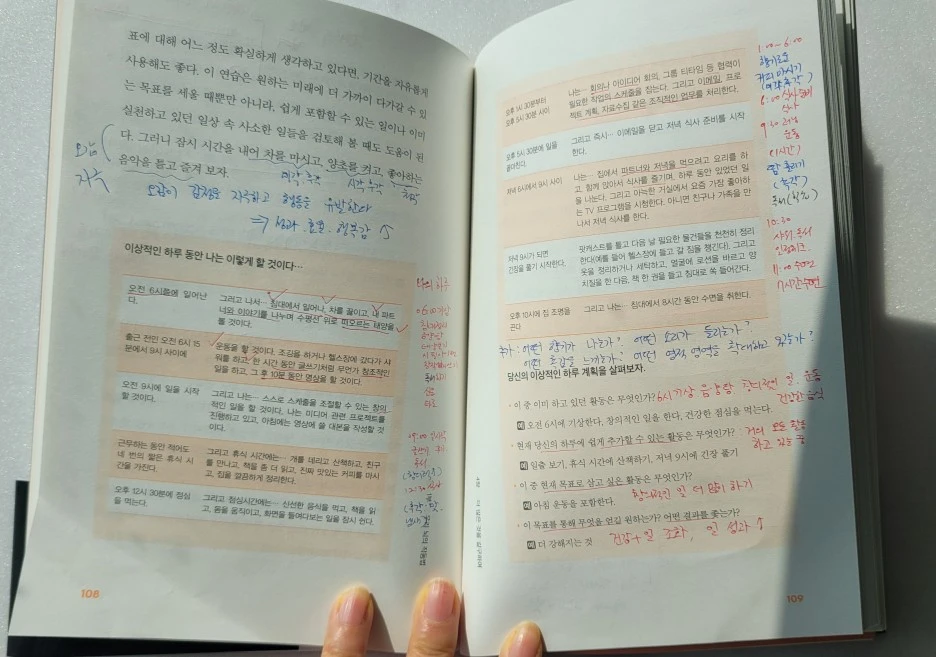 표에 대해 어느 정도 확실하게 생각하고 있다면, 기간을 자유롭게
사용해도 좋다. 이 연습은 원하는 미래에 더 가까이 다가갈 수 있
는 목표를 세울 때뿐만 아니라, 쉽게 포함할 수 있는 일이나 이미
실천하고 있던 일상 속 사소한 일들을 검토해 볼 때도 도움이 된
다. 그러니 잠시 시간을 내어 차를 마시고, 양초를 켜고, 좋아하는
음악을 듣고 즐겨 보자.
오감
자극
미각, 후각
시각, 후각
청각
오감이 감정을 자극하고 행동을 유발한다
⇒ 성과. 효율. 행복감 ↑
이상적인 하루 동안 나는 이렇게 할 것이다…
오전 6시쯤에 일어난
다.
그리고 나서… 침대에서 일어나, 차를 끓이고, 내 파트
너와 이야기를 나누며 수평선 위로 떠오르는 태양을
볼 것이다.
출근 전인 오전 6시 15
분에서 9시 사이에
운동을 할 것이다. 조깅을 하거나 헬스장에 갔다가 샤
워를 하고, 한 시간 동안 글쓰기처럼 무언가 창조적인
일을 하고, 그 후 10분 동안 명상을 할 것이다.
오전 9시에 일을 시작
할 것이다.
그리고 나는… 스스로 스케줄을 조절할 수 있는 창의
적인 일을 할 것이다. 나는 미디어 관련 프로젝트를
진행하고 있고, 아침에는 영상에 쓸 대본을 작성할 것
이다.
근무하는 동안 적어도
네 번의 짧은 휴식 시
간을 가진다.
그리고 휴식 시간에는… 개를 데리고 산책하고, 친구
를 만나고, 책을 좀 더 읽고, 진짜 맛있는 커피를 마시
고, 집을 깔끔하게 정리한다.
오후 12시 30분에 점심
을 먹는다.
그리고 점심시간에는… 신선한 음식을 먹고, 책을 읽
고, 몸을 움직이고, 화면을 들여다보는 일을 잠시 쉰다.
나의 하루
06:00 기상
09:00
독서
12:30 식사
108
오후 1시 30분부터
오후 5시 30분 사이
나는… 회의나 아이디어 회의, 그룹 티타임 등 협력이
필요한 작업의 스케줄을 잡는다. 그리고 이메일, 프로
젝트 계획, 자료수집 같은 조직적인 업무를 처리한다.
오후 5시 30분에 일을
끝마친다.
그리고 즉시… 이메일을 닫고 저녁 식사 준비를 시작
한다.
저녁 6시에서 9시 사이
나는… 집에서 파트너와 저녁을 먹으려고 요리를 하
고, 함께 앉아서 식사를 즐기며, 하루 동안 있었던 일
을 나눈다. 그리고 아늑한 거실에서 요즘 가장 좋아하
는 TV 프로그램을 시청한다. 아니면 친구나 가족을 만
나서 저녁 식사를 한다.
저녁 9시가 되면
긴장을 풀기 시작한다.
팟캐스트를 틀고 다음 날 필요한 물건들을 천천히 정리
한다(예를 들어 헬스장에 들고 갈 짐을 챙긴다). 그리고
옷을 정리하거나 세탁하고, 얼굴에 로션을 바르고 양
치질을 한 다음, 책 한 권을 들고 침대로 쏙 들어간다.
오후 10시에 침 조명을
끈다
그리고 나는… 침대에서 8시간 동안 수면을 취한다.
1:00~6:00
향기로운
커피 마시기
(미각, 후각)
6:00 식사준비
식사
9:30
운동
(1시간)
땀 흘리기
(촉각)
10:30
샤워. 독서
11:00 수면
7시간 수면
추가: 어떤 향기가 나는가? 어떤 소리가 들리는가?
어떤 촉감을 느끼는가? 어떤 영적, 영역을 확대하고 있는가?
당신의 이상적인 하루 계획을 살펴보자.
• 이 중 이미 하고 있던 활동은 무엇인가? 6시 기상 음양탕 창의적인 일. 운동
건강한 음식
예 오전 6시에 기상한다. 창의적인 일을 한다. 건강한 점심을 먹는다.
• 현재 당신의 하루에 쉽게 추가할 수 있는 활동은 무엇인가? : 거의 모든 활동
하고 있는 중
예 일출 보기, 휴식 시간에 산책하기, 저녁 9시에 긴장 풀기
• 이 중 현재 목표로 삼고 싶은 활동은 무엇인가?
예 아침 운동을 포함한다. 창의적인 일 더 많이 하기
• 이 목표를 통해 무엇을 얻길 원하는가? 어떤 결과를 좇는가?
예 더 강해지는 것 건강 + 일 조화, 일 성과 ↑
109